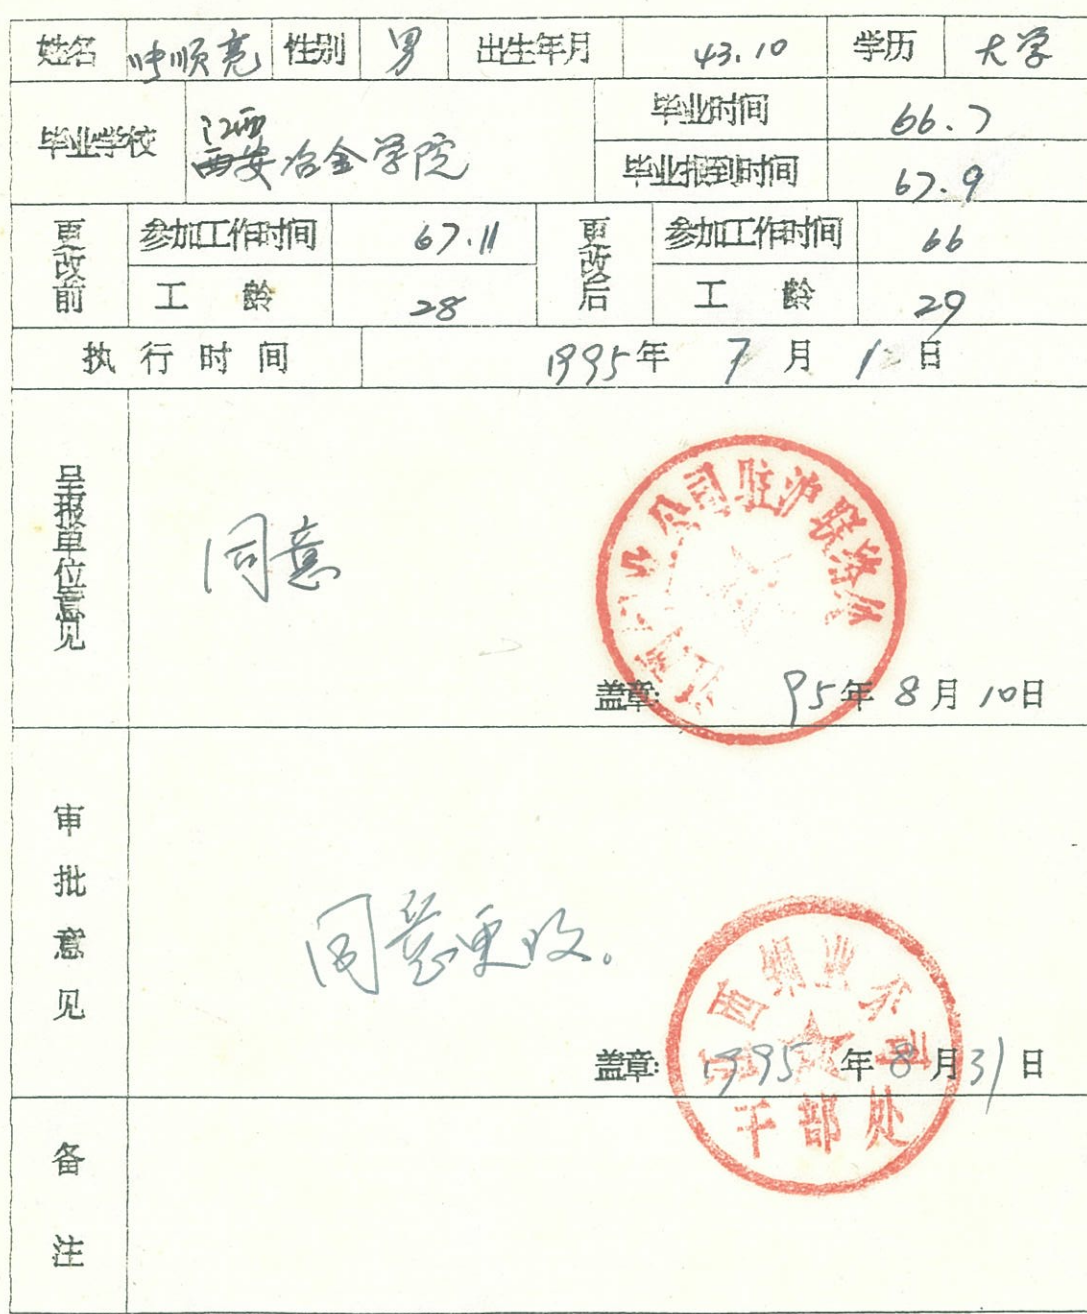 姓名 顺亮 性别 男 出生年月 43.10 学历 大学
毕业学校 江西
西安冶金学院
毕业时间 66.7
毕业报到时间 67.9
更改前 参加工作时间 67.11 更改后 参加工作时间 66
工龄 28 工龄 29
执行时间 1995年 7月 1日
呈报单位意见 同意
公司驻沪联络
盖章: 95年8月10日
审批意见 同意更改。
西铜业公司
干部处
盖章: 1995年8月31日
备注